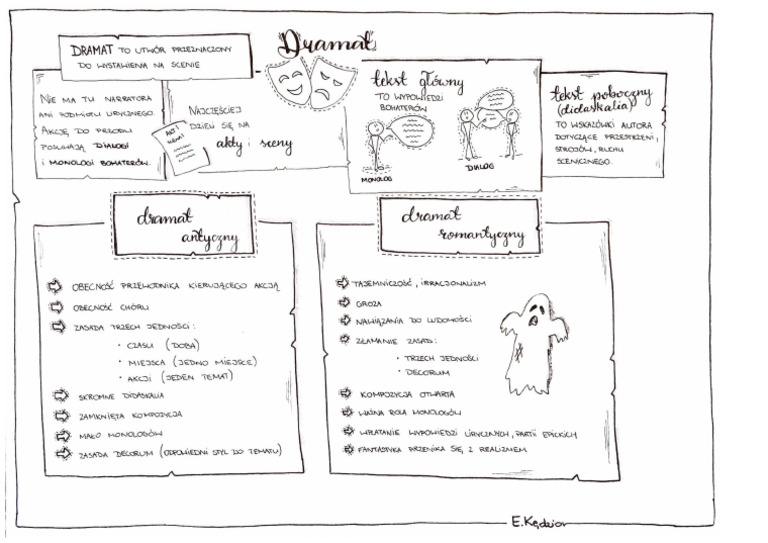 Dramat
DRAMAT TO UTWÓR PRZEZNACZONY
DO WYSTAWIENIA NA SCENIE
NIE MA TU NARRATORA
ANI PODMIOTU LIRYCZNEGO
AKCJĘ DO PRZODU
POSUWAJĄ DIALOGI
I MONOLOGI BOHATERÓW.
NAJCZĘŚCIEJ
DZIELI SIĘ NA
akty i sceny
AKT I
SCENA I
tekst główny
TO WYPOWIEDZI
BOHATERÓW
MONOLOG
DIALOG
tekst poboczny
(didaskalia)
TO WSKAZÓWKI AUTORA
DOTYCZĄCE PRZESTRZENI,
STROJÓW, RUCHU
SCENICZNEGO.
dramat
antyczny
OBECNOŚĆ PRZEWODNIKA KIERUJĄCEGO AKCJĄ
OBECNOŚĆ CHÓRU
ZASADA TRZECH JEDNOŚCI:
• CZASU (DOBA)
• MIEJSCA (JEDNO MIEJSCE)
• AKCJI (JEDEN TEMAT)
SKROMNE DIDASKALIA
ZAMKNIĘTA KOMPOZYCJA
MAŁO MONOLOGÓW
ZASADA DECORUM (ODPOWIEDNI STYL DO TEMATU)
dramat
romantyczny
TAJEMNICZOŚĆ, IRRACJONALIZM
GROZA
NAWIĄZANIA DO LUDOWOŚCI
ZŁAMANIE ZASAD:
• TRZECH JEDNOŚCI
• DECORUM
KOMPOZYCJA OTWARTA
WAŻNA ROLA MONOLOGÓW
WPLATANIE WYPOWIEDZI LIRYCZNYCH, PARTII EPICKICH
FANTASTYKA PRZENIKA SIĘ Z REALIZMEM
E. Kędzior